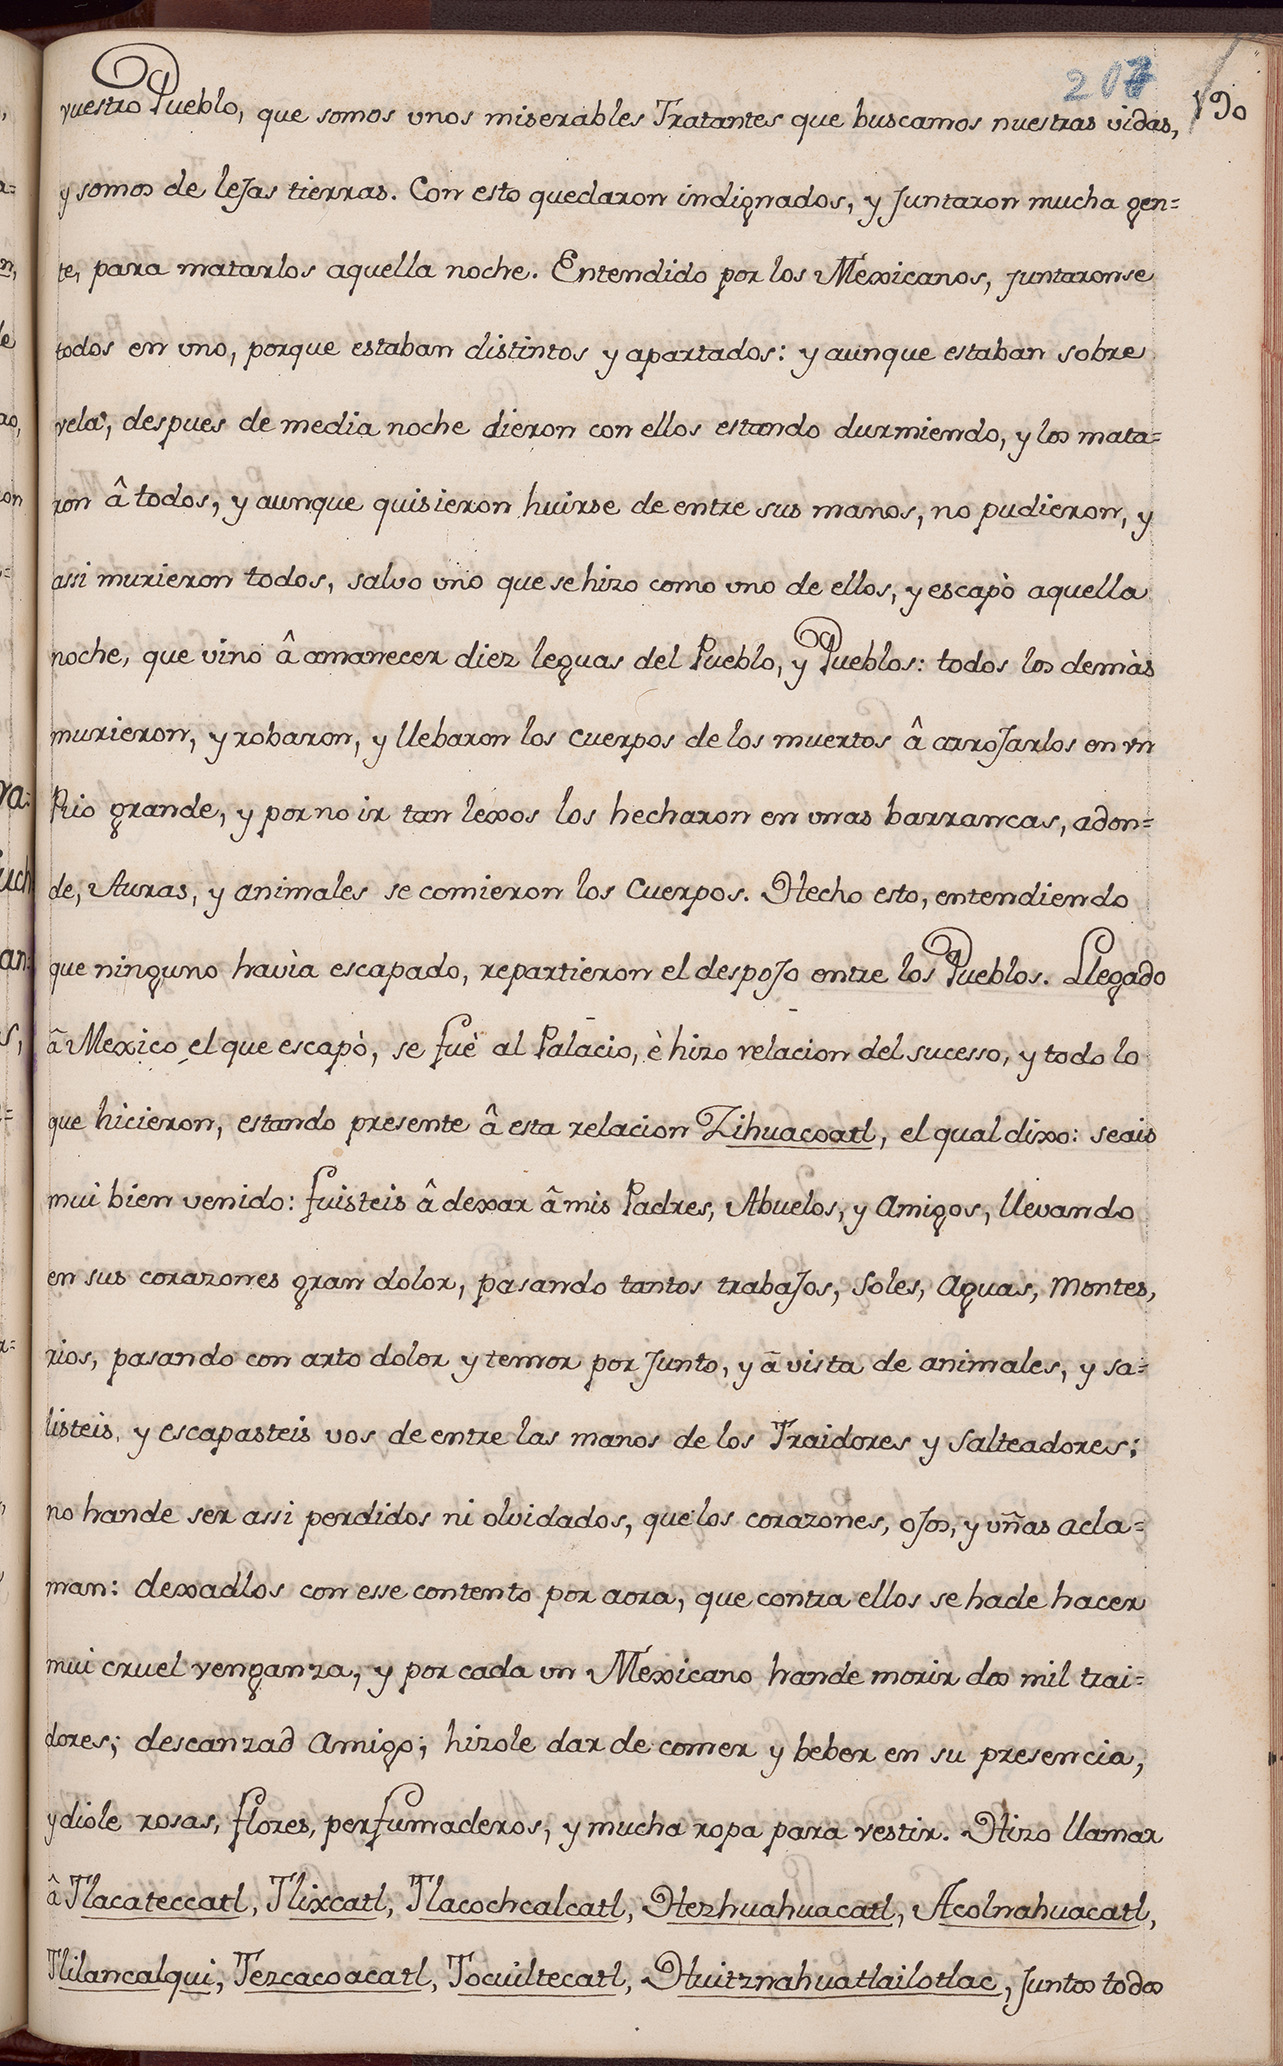 207
190
vuestro Pueblo, que somos vnos miserables Tratantes que buscamos nuestras vidas,
y somos de leJas tierras. Con esto quedaron indignados, y Juntaron mucha gen=
te, para matarlos aquella noche. Entendido por los Mexicanos, Juntaronse
todos en vno, porque estaban distintos y apartados: y aunque estaban sobre
vela, despues de media noche dieron con ellos estando durmiendo, y los mata=
ron â todos, y aunque quisieron huirse de entre sus manos, no pudieron, y
assi murieron todos, salvo vno que se hizo como vno de ellos, y escapò aquella
noche, que vino â amanecer diez leguas del Pueblo, y Pueblos: todos los demàs
murieron, y robaron, y llebaron los cuerpos de los muertos â arroJarlos en vn
Rio grande, y por no ir tan lexos los hecharon en vnas barrancas, adon=
de, Auras, y animales se comieron los Cuerpos. Hecho esto, entendiendo
que ninguno havìa escapado, repartieron el despoJo entre los Pueblos. Llegado
â Mexico el que escapò, se fuè al Palacio, è hizo relacion del sucesso, y todo lo
que hicieron, estando presente â esta relacion Zihuacoatl, el qual dixo: seais
mui bien venido: fuisteis â dexar â mis Padres, Abuelos, y Amigos, llevando
en sus corazones gran dolor, pasando tantos trabaJos, Soles, Aguas, Montes,
rios, pasando con arto dolor y temor por Junto, y â vista de animales, y sa=
listeis, y escapasteis vos de entre las manos de los Traidores y Salteadores;
no hande ser assi perdidos ni olvidados, que los corazones, oJos, y vñas acla=
man: dexadlos con esse contento por aora, que contra ellos se hade hacer
mui cruel venganza, y por cada vn Mexicano hande morir dos mil trai=
dores; descanzad Amigo; hizole dar de comer y beber en su presencia,
y diole rosas, flores, perfumaderos, y mucha ropa para vestir. Hizo llamar
â Tlacateccatl, Tlixcatl, Tlacochcalcatl, Hezhuahuacatl, Acolnahuacatl,
Tlilancalqui, Tezcacoacatl, Tocuiltecatl, Huitznahuatlailotlac, Juntos todos